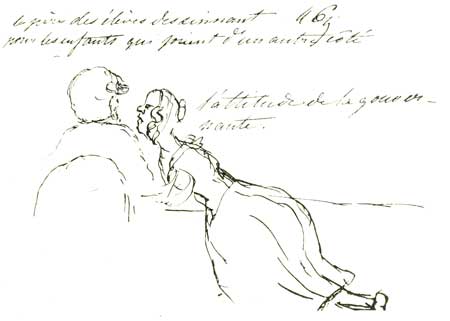 le père des élèves dessinant 46
pour les enfants qui jouent d'un autre côté
l'attitude de la gouver-
nante.